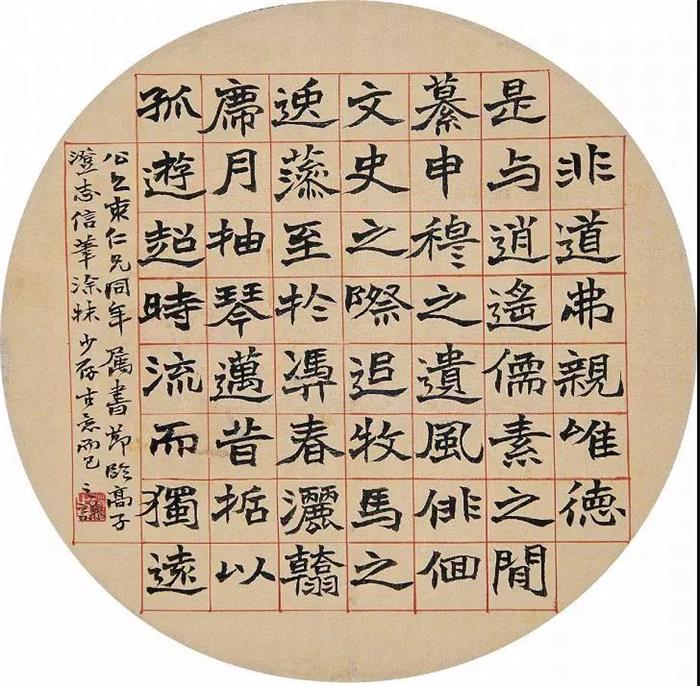 非道弗親唯德
是与逍遙儒素之間
纂申穆之遺風俳佪
文史之際追牧馬之
逸藻至於憑春灑翰
席月抽琴邁昔哲以
孤遊超時流而獨遠
仁兄同年属書節臨高子
澄志信筆涂抹少存古意而已